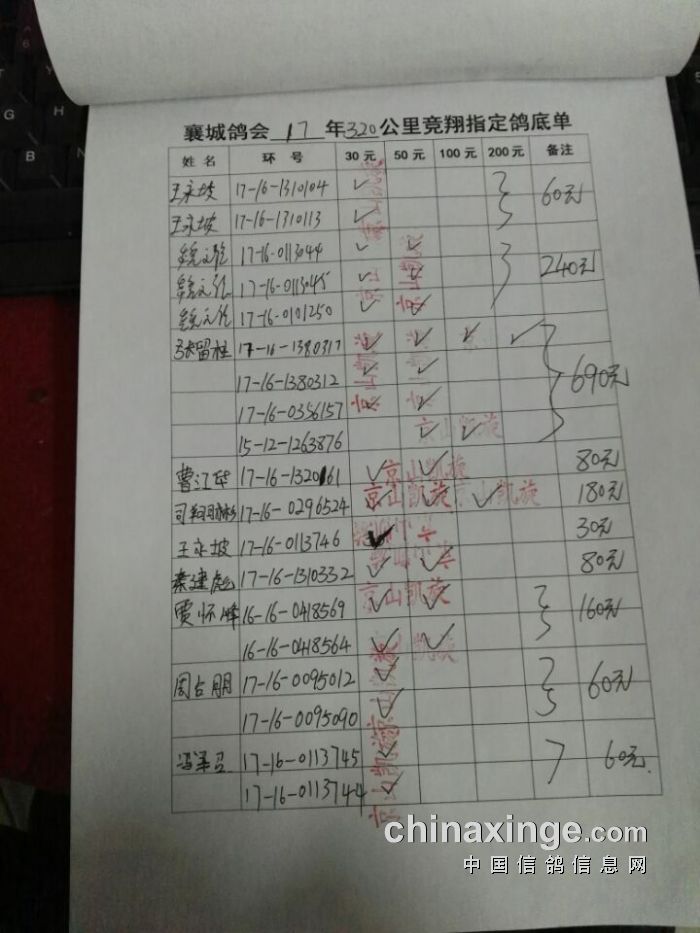 襄城鸽会 17 年320公里竞翔指定鸽底单
姓名 环号 30元 50元 100元 200元 备注
王永坡 17-16-1310104 ✓ 60元
王永坡 17-16-1310113 ✓
17-16-0113044 ✓ ✓ 240元
17-16-0113045 ✓ ✓
17-16-0101250 ✓ ✓
张留柱 17-16-1380317 ✓ ✓ ✓ ✓ 690元
17-16-1380312 ✓ ✓
17-16-0356157 ✓ ✓
15-12-1263876 ✓ ✓
曹江华 17-16-1320161 ✓ ✓ 80元
京山凯旋
17-16-0296524 ✓ ✓ ✓ 180元
京山凯旋 京山凯旋
王永坡 17-16-0113746 ✓ 30元
秦建彪 17-16-1310332 ✓ ✓ 80元
贾怀峰 16-16-0418569 ✓ ✓ 160元
京山凯旋
16-16-0418564 ✓ ✓
周占朋 17-16-0095012 ✓ 60元
17-16-0095090 ✓
17-16-0113745 ✓ 60元
17-16-0113744 ✓
京山凯旋
chinaxinge.com
中国信鸽信息网